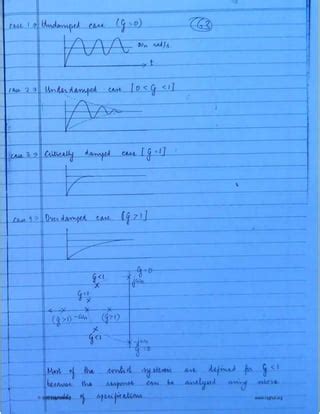 case 1 → Undamped case (ξ=0)
(163)
ωn rad/s
t
case 2 → Underdamped case [0<ξ<1]
case 3 → Critically damped case [ξ=1]
case 4 → Overdamped case [ξ>1]
ξ=0
jωn
ξ<1
ξ=1
(ξ>1) -ωn (ξ>1)
ξ<1
-jωn
ξ=0
Most of the control systems are defined for ξ<1
because the response can be analysed using more
of specifications